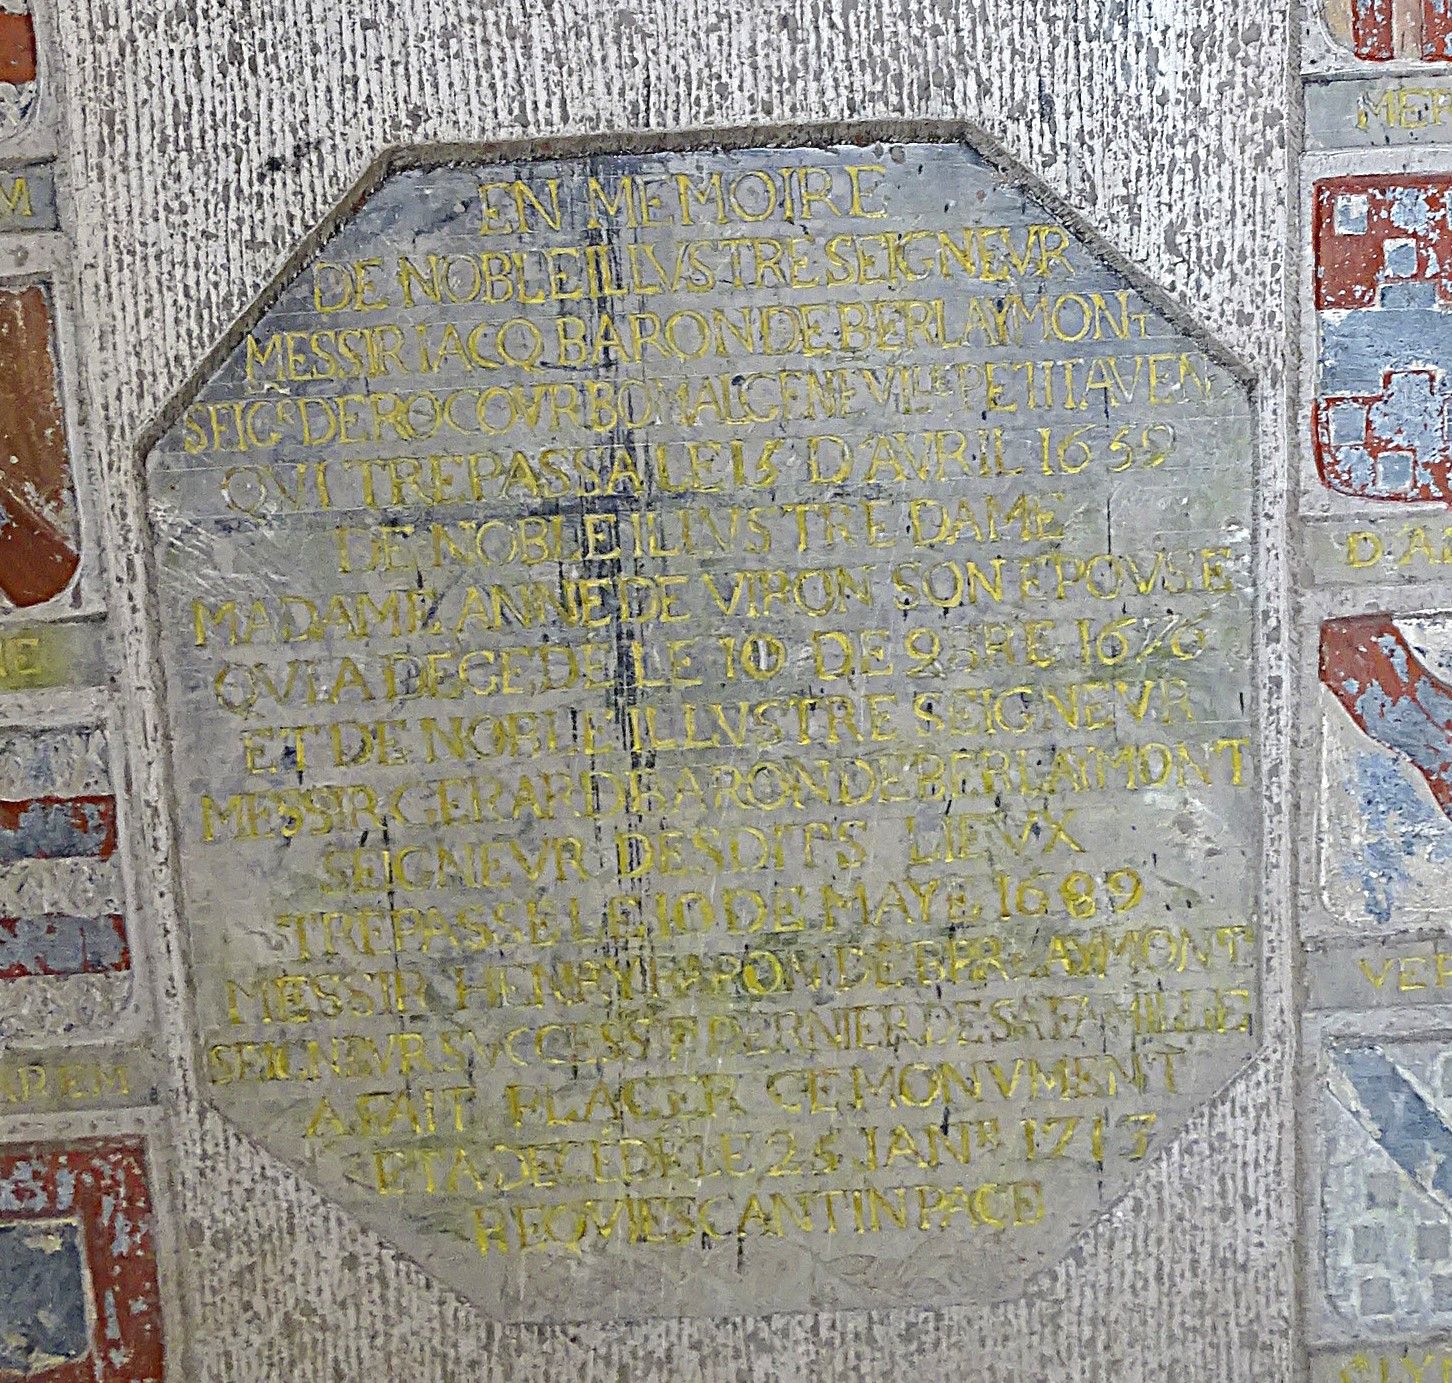 EN MEMOIRE
DE NOBLE ILLVSTRE SEIGNEVR
MESSIR IACQ BARON DE BERLAYMONT
SEIGR DE ROCOVR BOMAL GENEVILLE PETIT AVEN
QVI TREPASSA LE 15 D'AVRIL 1659
DE NOBLE ILLVSTRE DAME
MADAME ANNE DE VIRON SON EPOVSE
QVI A DECEDE LE 10 DE 9BRE 1676
ET DE NOBLE ILLVSTRE SEIGNEVR
MESSIR GERARD BARON DE BERLAYMONT
SEIGNEVR DESDITS LIEVX
TREPASSE LE 10 DE MAYE 1689
MESSIR HENRY BARON DE BERLAYMONT
SEIGNEVR SVCCESSIF DERNIER DE SA FAMILLE
A FAIT PLACER CE MONVMENT
ET A DECEDE LE 25 JANR 1717
REQVIESCANT IN PACE